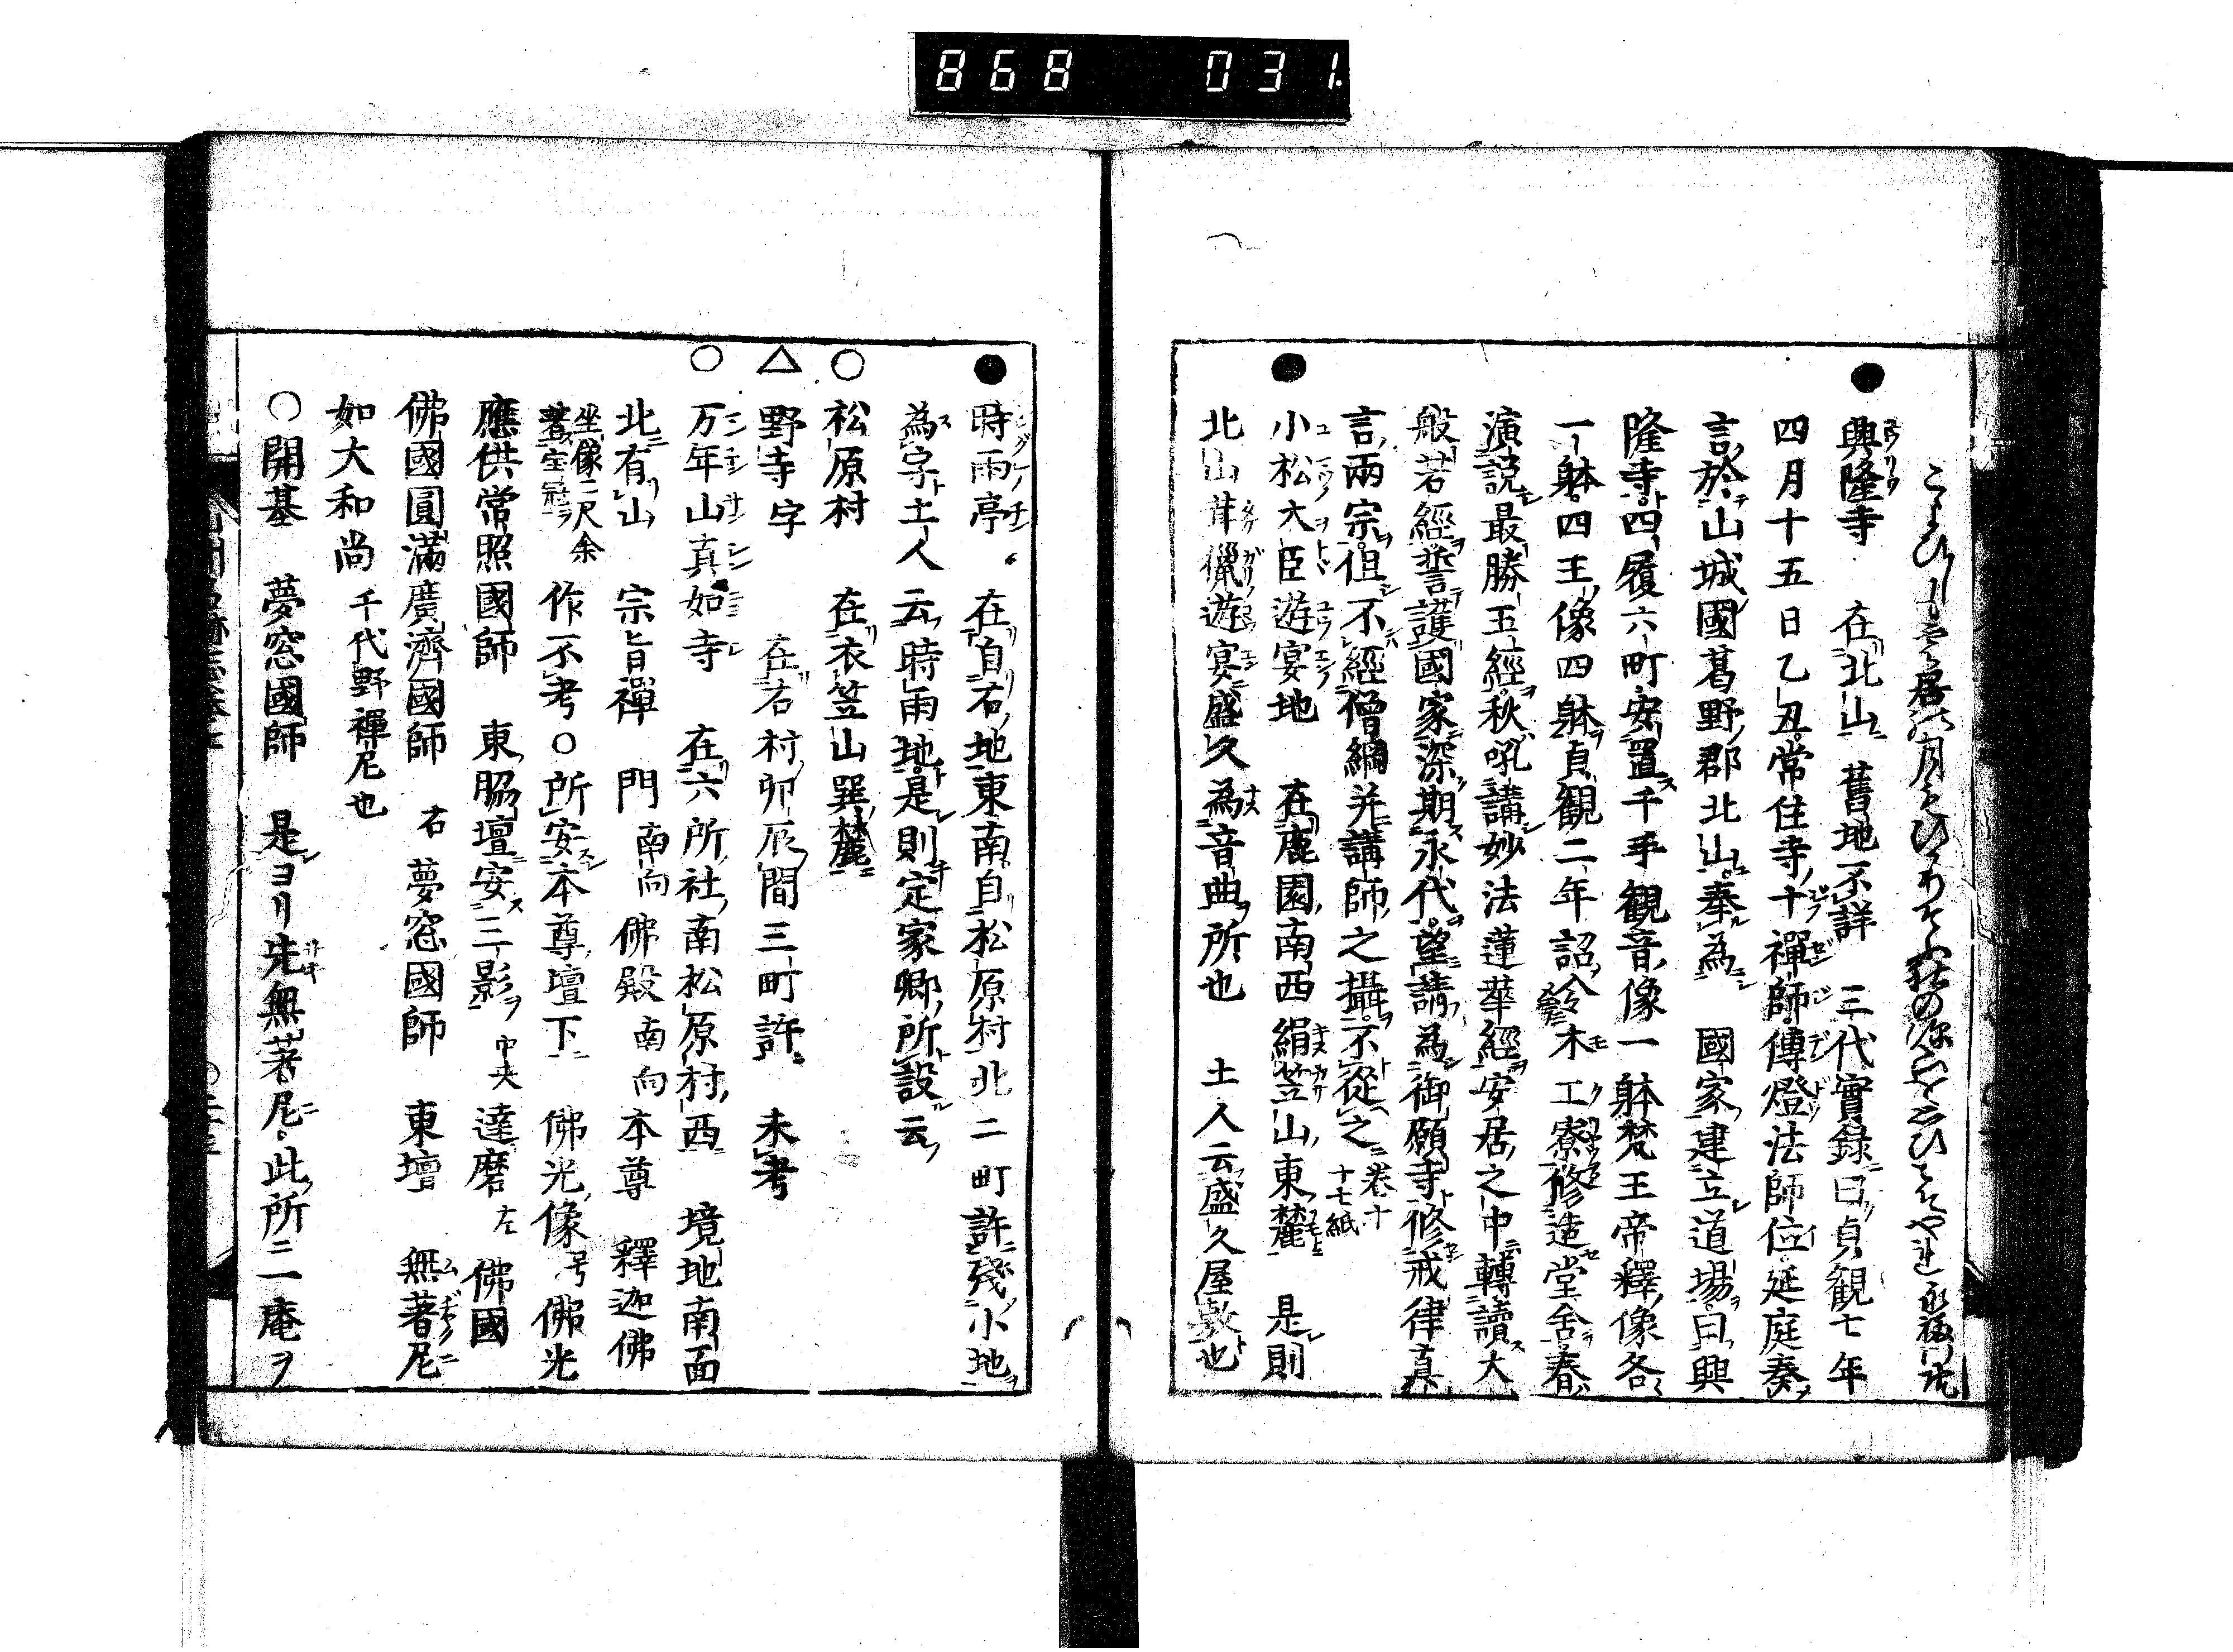 868 031
●興隆寺 在北山 舊地不詳 三代實録曰貞観七年
四月十五日乙丑常住寺十禪師傳燈法師位延庭奏
言於山城國葛野郡北山奉為 國家建立道場曰興
隆寺四履六町安置千手観音像一躰梵王帝釋像各
一躰四王像四躰貞観二年詔令木工寮修造堂舎春
演説最勝王經秋吼講妙法蓮華經安居之中轉讀大
般若經誓護國家深期永代望請為御願寺修戒律真
言兩宗但不經僧綱并講師之攝不從之 巻十 十七紙
●小松大臣遊宴地 在鹿園南西絹笠山東麓 是則
北山茸獵遊宴盛久為音曲所也 土人云盛久屋敷也
●時雨亭 在自右地東南自松原村北二町許殘小地
為字土人云時雨地是則定家卿所設云
○松原村 在衣笠山巽麓
△野寺字 在右村卯辰間三町許 未考
○万年山真如寺 在六所社南松原村西 境地南面
北有山 宗旨禪 門南向 佛殿南向 本尊 釋迦佛
坐像二尺余 著宝冠 作不考○所安本尊壇下 佛光像号佛光
應供常照國師 東脇壇安三影 中央 達磨 左 佛國
佛國圓滿廣濟國師 右 夢窓國師 東壇 無著尼
如大和尚 千代野禪尼也
○開基 夢窓國師 是ヨリ先無著尼此所ニ一庵ヲ